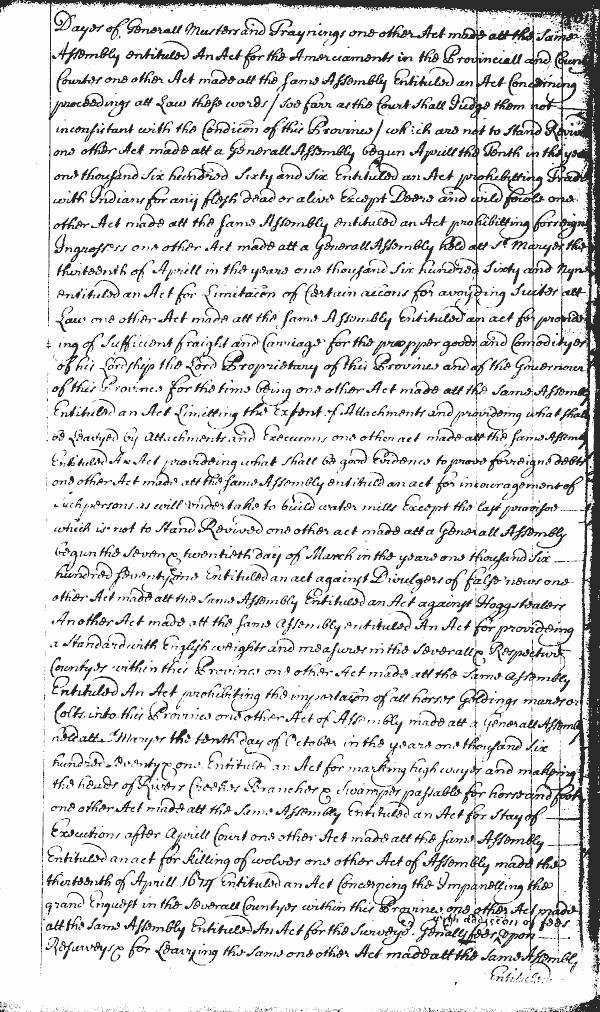 Dayes of Generall Musters and Traynings one other Act made att the same
Assembly entituled An Act for the Amerciaments in the Provinciall and County
Courtes one other Act made att the same Assembly Entituled an Act Concerning
proceedings att Law these words / soe farr as the Court shall Judge them not
inconsistant with the Condicõn of this Province / which are not to Stand Revived
one other Act made att a Generall Assembly begun Aprill the Tenth in the yeare
one thousand Six hundred Sixty and Six Entituled an Act prohibitting Trade
with Indians for any flesh dead or alive Except Deere and wild fowle one
other Act made att the same Assembly entituled an Act prohibitting forreigne
Ingrossers one other Act made att a Generall Assembly held att St Maryes the
thirteenth of Aprill in the yeare one thousand Six hundred Sixty and Nyne
entituled an Act for Limitacõn of Certain accons for avoyding Suites att
Law one other Act made att the same Assembly Entituled an act for provide
ing of Sufficient fraight and Carriage for the propper goods and Comodityes
of his Lordship the Lord Proprietary of this Province and of the Governour
of this Province for the time being one other Act made att the same Assembly
Entituled an Act Limitting the Extent of Attachments and provideing what shall
be Leavyed by Attachments and Execucons one other act made att the same Assembly
Entituled An Act provideing what shall be good Evidence to prove forreigne debts
one other Act made att the same Assembly entituled an act for incouragement of
such persons as will undertake to build water mills Except the last provisoe
which is not to Stand Revived one other act made att a Generall Assembly
begun the Seven & twentieth day of March in the yeare one thousand Six
hundred seventy one Entituled an act against Divulgers of false news one
other Act made att the same Assembly Entituled an Act against Hoggstealers
Another Act made att the same Assembly entituled An Act for provideing
a Standard with English weights and measures in the severall & Respective
Countyes within this Province one other Act made att the same Assembly
Entituled An Act prohibitting the importacõn of all horses Geldings mares or
Colts into this Province one other Act of Assembly made att a Generall Assembly
held att St Maryes the tenth day of October in the yeare one thousand Six
hundred Seventy & one Entituled an Act for marking high wayes and making
the heads of Rivers Creekes Branches & Swamps passable for horse and foot
one other Act made att the same Assembly Entituled an Act for Stay of
Executions after Aprill Court one other Act made att the same Assembly
Entituled an act for killing of wolves one other Act of Assembly made the
thirteenth of Aprill 1674 Entituled an Act Concerning the Impanelling the
grand Enquest in the Severall Countyes within this Province one other Act made
with addicion of fees
att the same Assembly Entituled An Act for the Surveyor Generalls fees upon
Resurveys & for Leavying the same one other Act made att the same Assembly
Entituled